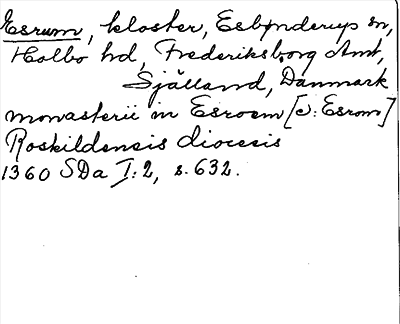 Esrum, kloster, Esbønderup sn,
Holbo hd, Frederiksborg Amt,
Sjålland, Danmark
monasterii in Esroem [ɔ: Esrom]
Roskildensis diocesis
1360 SDa I:2, s. 632.